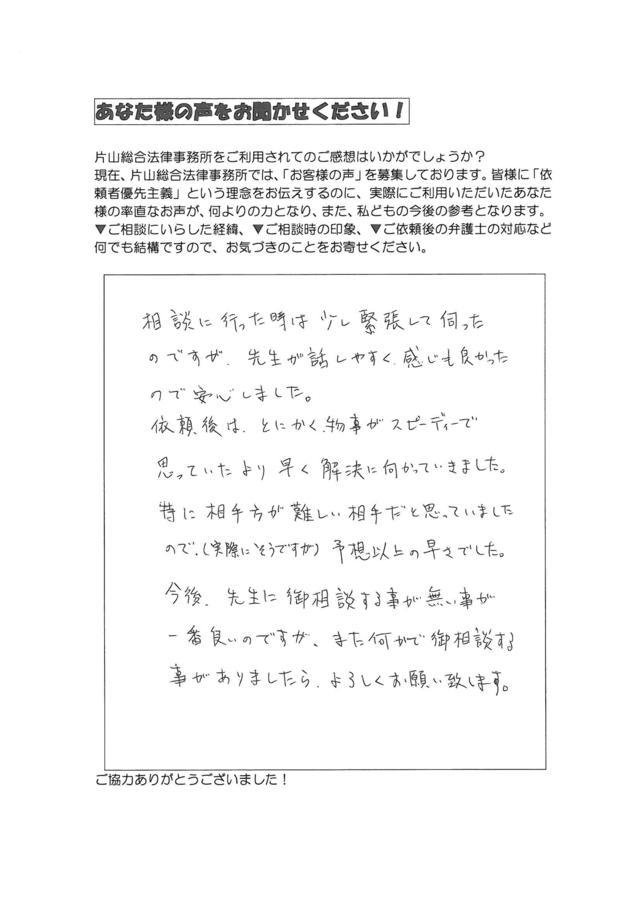 あなた様の声をお聞かせください！
片山総合法律事務所をご利用されてのご感想はいかがでしょうか？
現在、片山総合法律事務所では、「お客様の声」を募集しております。皆様に「依
頼者優先主義」という理念をお伝えするのに、実際にご利用いただいたあなた
様の率直なお声が、何よりの力となり、また、私どもの今後の参考となります。
▼ご相談にいらした経緯、▼ご相談時の印象、▼ご依頼後の弁護士の対応など
何でも結構ですので、お気づきのことをお寄せください。
相談に行った時は少し緊張して伺った
のですが、先生が話しやすく、感じも良かった
ので安心しました。
依頼後は、とにかく、物事がスピーディーで
思っていたより早く解決に向かっていきました。
特に相手方が難しい相手だと思っていました
ので、（実際にそうですが）予想以上の早さでした。
今後、先生に御相談する事が無い事が
一番良いのですが、また何かで御相談する
事がありましたら、よろしくお願い致します。
ご協力ありがとうございました！